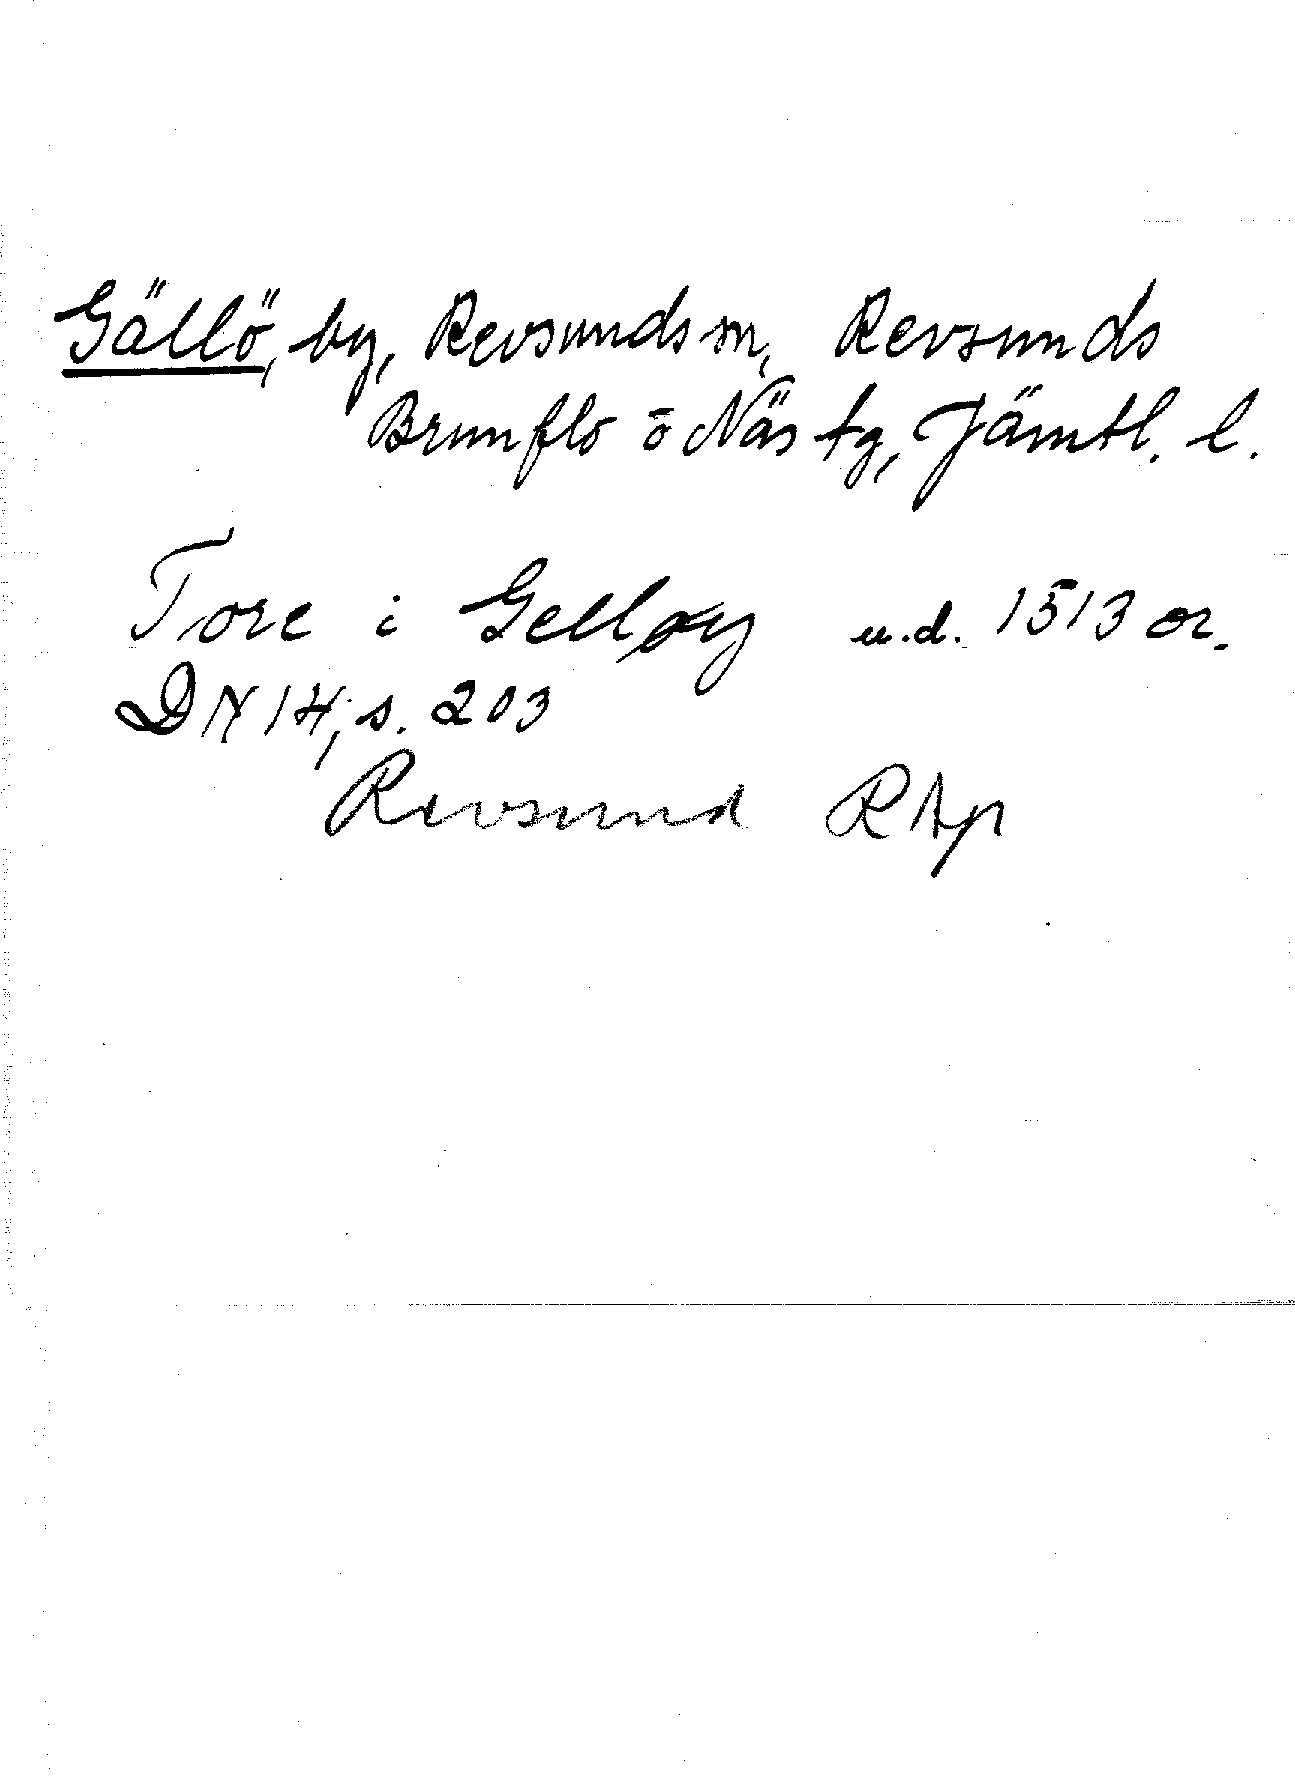 Gällö, by, Revsunds sn, Revsunds
Brunflo o Näs tg, Jämtl. l.
Tore i Gelløy u.d. 1513 or.
DN 14, s. 203
Revsund RAp